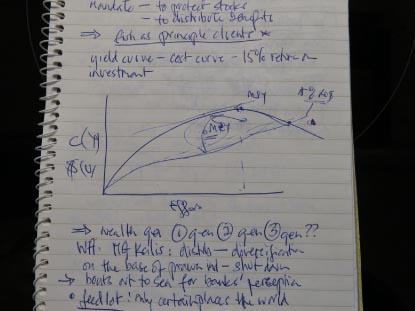 mandate – to protect stocks
– to distribute benefits
⇒ fish as principle clients *
yield curve – cost curve – 15% return on
investment
MSY
MEY
C(Y)
$(U)
Effort
⇒ wealth gen ① gen ② gen ③ gen??
WA. MG Kailis: – diversification
on the base of prawn ind – shut down
→ boats out to sea for banks' perception
• feedlot: only certain places the world